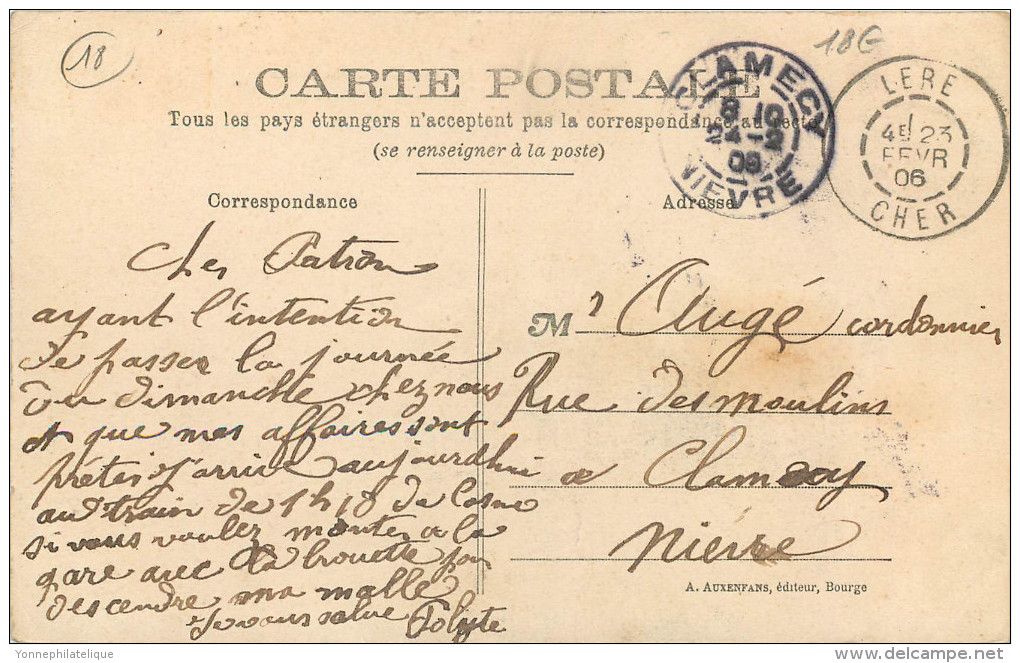 18
18G
CARTE POSTALE
Tous les pays étrangers n'acceptent pas la correspondance au recto
(se renseigner à la poste)
CLAMECY
8 10
4-2
06
NIEVRE
LERE
4E 23
FEVR
06
CHER
Correspondance
Cher Patron
ayant l'intention
de passer la journée
du dimanche chez nous
et que mes affaires sont
prêtes j'arrive aujourdhui
au train de 1h18 de Cosne
si vous voulez monter a la
gare avec la brouette pour
descendre ma malle
Je vous salue Polyte
Adresse
M r Augé cordonnier
Rue des moulins
a Clamecy
Nièvre
A. AUXENFANS, éditeur, Bourge
© Yonnephilatelique
delcampe.net